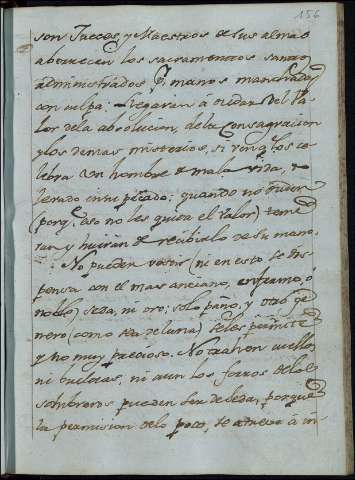 156
son Jueces, y Maestros de sus almas
aborrecen los sacramentos santos
administrados, p. manos manchadas
con culpa: llegaran à dudar del Va-
lor dela absolucion, dela Consagracion
y los demas misterios, si ven q los ce-
lebra un hombre de mala vida, y
lleno en su picado; quando no duden
(porq. eso no les quita el Valor) teme-
ran y huiràn de recibirlo de su mano.
No pueden vestir (ni en esto se dis-
pensa con el mas anciano, enfermo, ò
noble) seda, ni oro; solo paño, y otro ge-
nero (como sea de lana) se les permite
y no muy precioso. No trahen vuelos,
ni bueltas, ni aun los forros delos
sombreros pueden ser de seda, porque
la permision delo poco, se atreve à in-